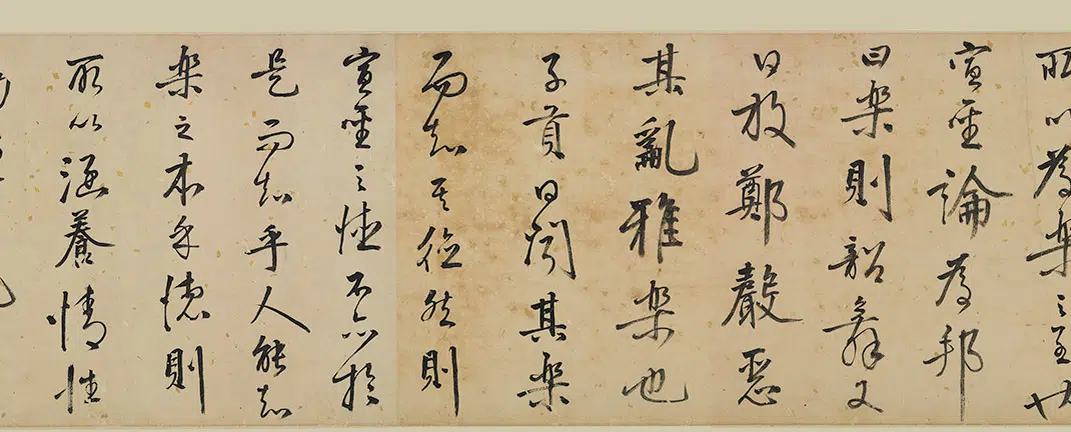 所以為樂之至也
宣聖論為邦
曰樂則韶舞又
曰放鄭聲惡
其亂雅樂也
子貢曰聞其樂
而知其德然則
宣聖之德不亦於
是而知乎人能知
樂之本乎德則
所以涵養情性